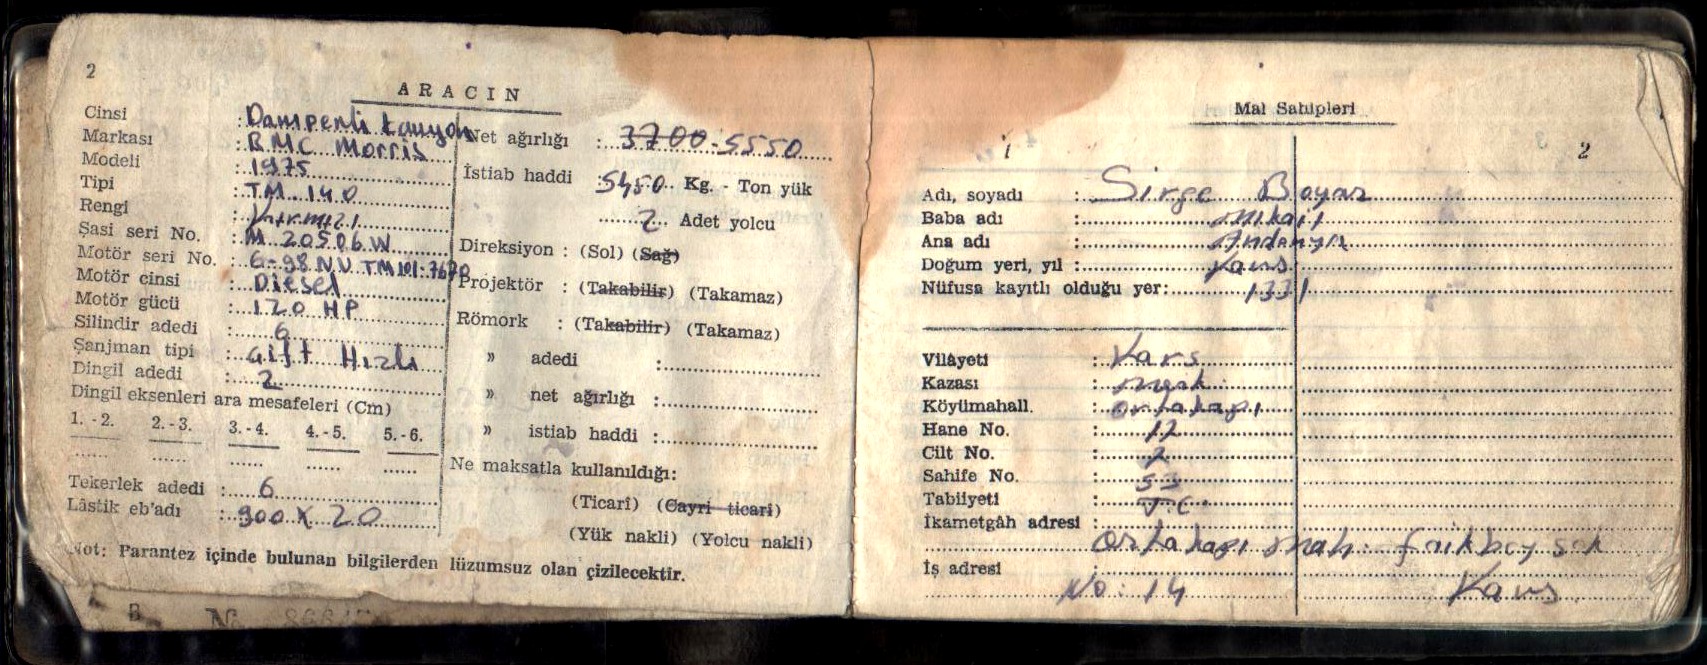 2
ARACIN
Cinsi : Damperli kamyon
Markası : BMC Morris
Modeli : 1975
Tipi : TM 140
Rengi : Kırmızı
Şasi seri No. : M 20506 W
Motör seri No. : 6-98 NV TM 101:7670
Motör cinsi : Diesel
Motör gücü : 120 HP
Silindir adedi : 6
Şanjman tipi : Çift Hızlı
Dingil adedi : 2
Dingil eksenleri ara mesafeleri (Cm)
1.-2. 2.-3. 3.-4. 4.-5. 5.-6.
Tekerlek adedi : 6
Lâstik eb'adı : 900 X 20
Net ağırlığı : 3700-5550
İstiab haddi : 5450 Kg. - Ton yük
2 Adet yolcu
Direksiyon : (Sol) (Sağ)
Projektör : (Takabilir) (Takamaz)
Römork : (Takabilir) (Takamaz)
» adedi :
» net ağırlığı :
» istiab haddi :
Ne maksatla kullanıldığı:
(Ticarî) (Gayri ticari)
(Yük nakli) (Yolcu nakli)
Not: Parantez içinde bulunan bilgilerden lüzumsuz olan çizilecektir.
B No
Mal Sahipleri
1 2
Adı, soyadı : Sirge Boyar
Baba adı : Mikail
Ana adı :
Doğum yeri, yıl : Kars
Nüfusa kayıtlı olduğu yer: 1331
Vilâyeti : Kars
Kazası : Merk.
Köyümahall. : Ortakapı
Hane No. : 12
Cilt No. : 2
Sahife No. : 53
Tabiiyeti : T.C.
İkametgâh adresi :
Ortakapı mah. faikbey sok
İş adresi :
No: 14 Kars